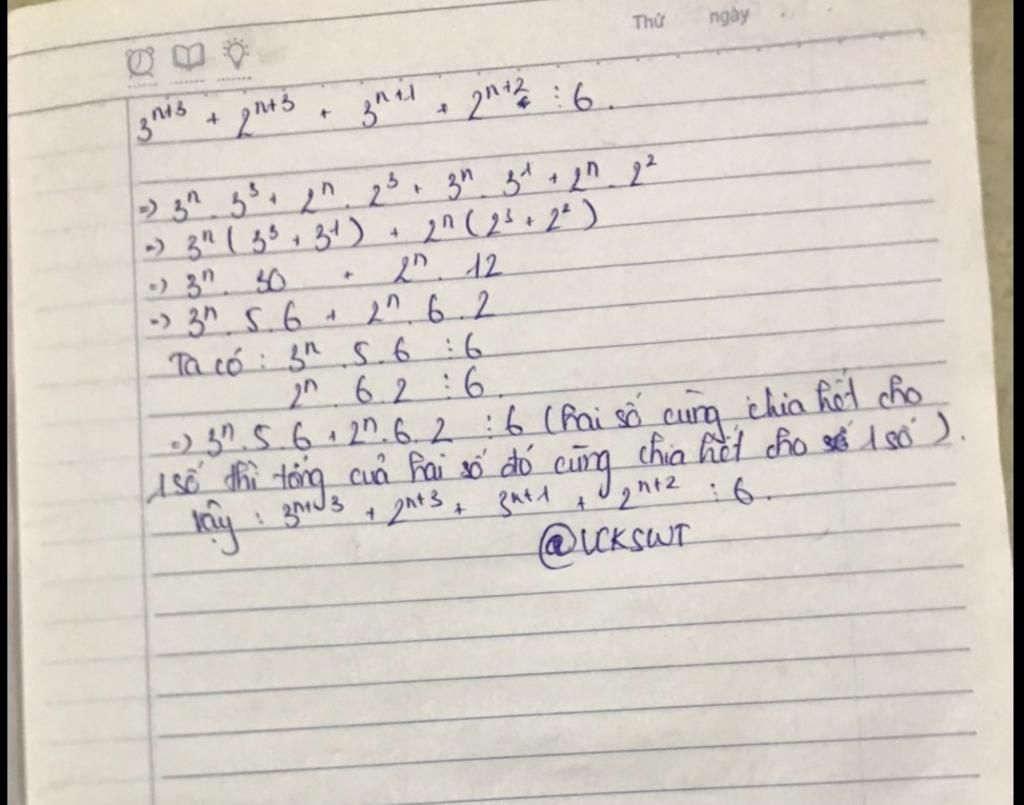 Thứ ngày
3ⁿ⁺³ + 2ⁿ⁺³ + 3ⁿ⁺¹ + 2ⁿ⁺² ⋮ 6.
=> 3ⁿ . 3³ + 2ⁿ . 2³ + 3ⁿ . 3¹ + 2ⁿ . 2²
=> 3ⁿ ( 3³ + 3¹ ) + 2ⁿ ( 2³ + 2² )
=> 3ⁿ . 30 + 2ⁿ . 12
=> 3ⁿ . 5 . 6 + 2ⁿ . 6 . 2
Ta có : 3ⁿ . 5 . 6 ⋮ 6
2ⁿ . 6 . 2 ⋮ 6.
=> 3ⁿ . 5 . 6 + 2ⁿ . 6 . 2 ⋮ 6 ( hai số cùng chia hết cho
1 số thì tổng của hai số đó cũng chia hết cho 1 số ).
Vậy : 3ⁿ⁺³ + 2ⁿ⁺³ + 3ⁿ⁺¹ + 2ⁿ⁺² ⋮ 6.
@VCKSWT